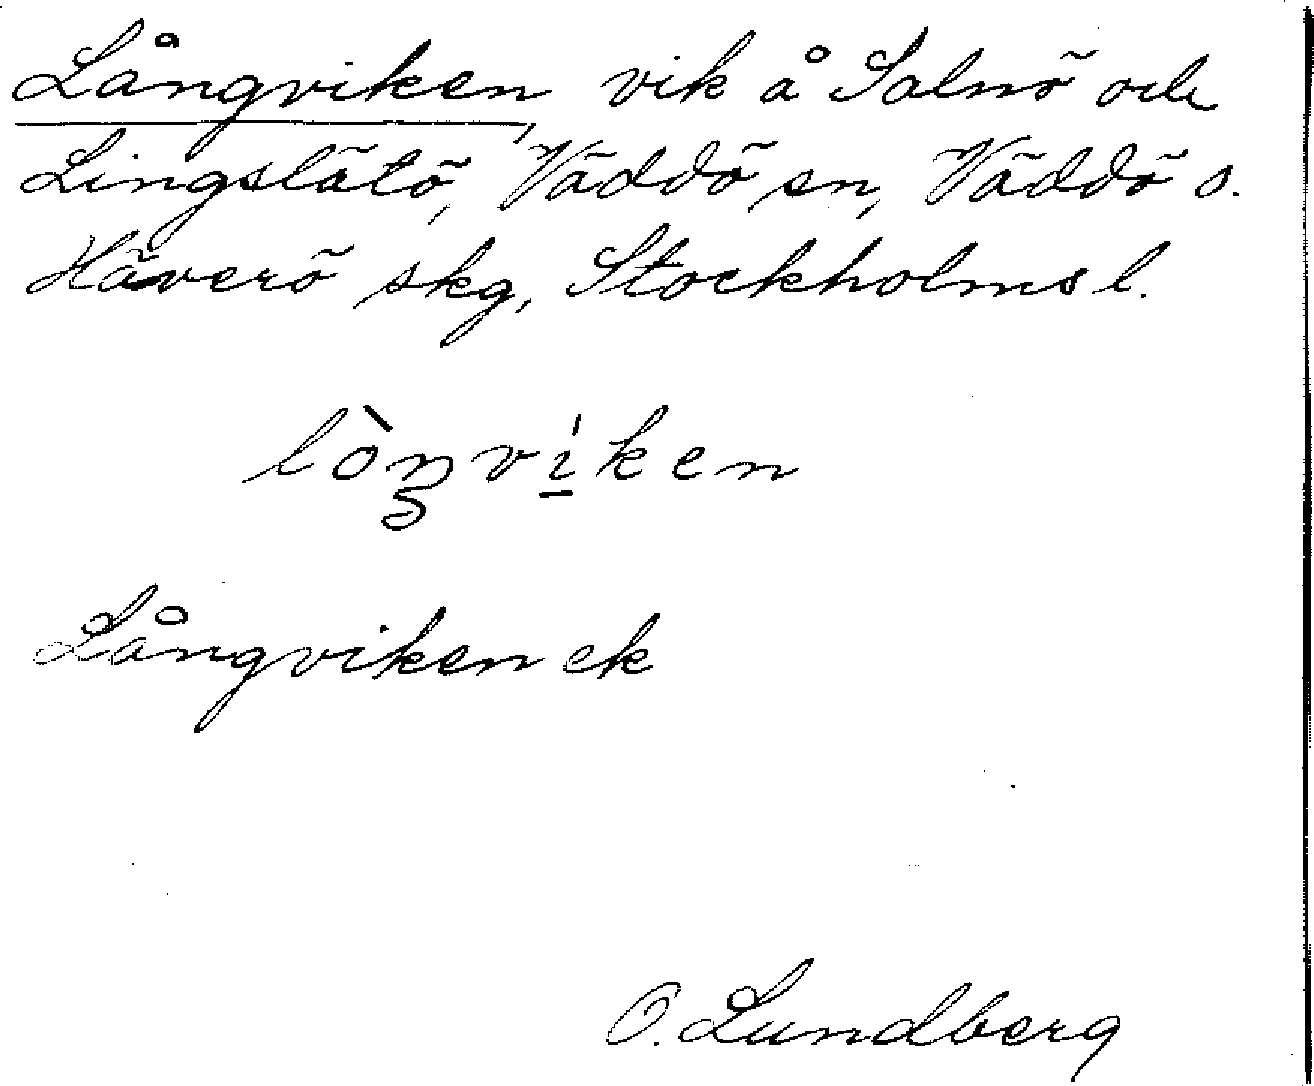 Långviken, vik å Salnö och
Lingslätö, Väddö sn, Väddö o.
Häverö skg, Stockholms l.
lòŋvíken
Långviken ek
O. Lundberg